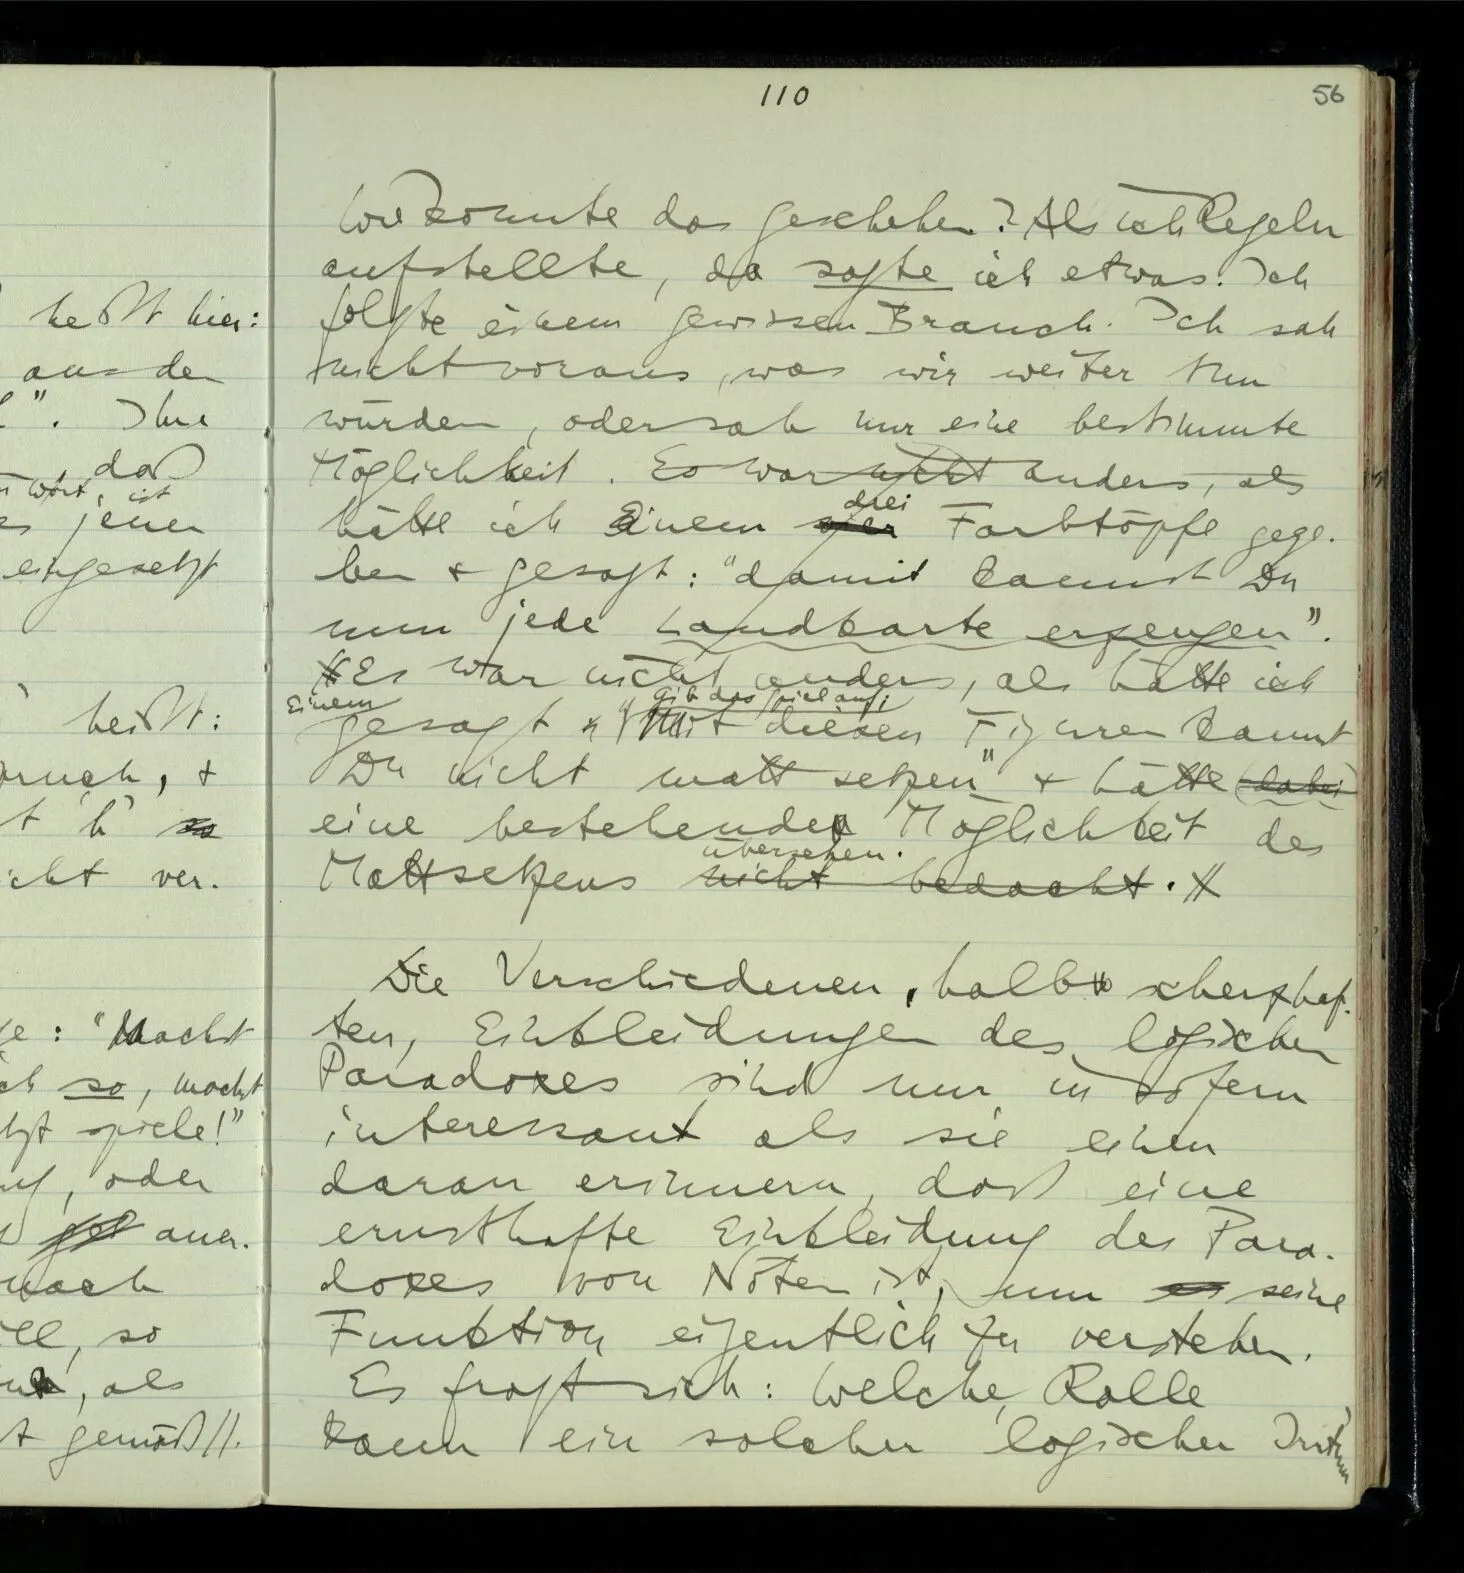 110
56
heißt hier:
aus der
". Ihre
, daß
Wort, ist
jener
eingesetzt
heißt:
pruch, +
t 'h' so
icht ver.
ge: "Machst
ich so, machst
tzt spiele!"
, oder
auer.
nach
, so
, als
t gemäß //.
Wie konnte das geschehen? Als ich Regeln
aufstellte, da sagte ich etwas. Ich
folgte einem gewissen Brauch. Ich sah
nicht voraus, was wir weiter tun
würden, oder sah nur eine bestimmte
Möglichkeit. Es war nicht anders, als
drei
hätte ich Einem vier Farbtöpfe gege-
ben + gesagt: "damit kannst Du
nun jede Landkarte erzeugen".
//Es war nicht anders, als hätte ich
Einem gib das Spiel auf;
gesagt "Mit diesen Figuren kannst
Du nicht matt setzen" + hätte (dabei)
eine bestehende Möglichkeit des
übersehen.
Mattsetzens nicht bedacht. //
Die Verschiedenen, halb scherzhaf-
ten, Einkleidungen des logischen
Paradoxes sind nur in sofern
interessant als sie einen
daran erinnern, daß eine
ernsthafte Einkleidung des Para-
doxes von Nöten ist, um es seine
Funktion eigentlich zu verstehen.
Es fragt sich: Welche Rolle
kann ein solcher logischer Irrtum